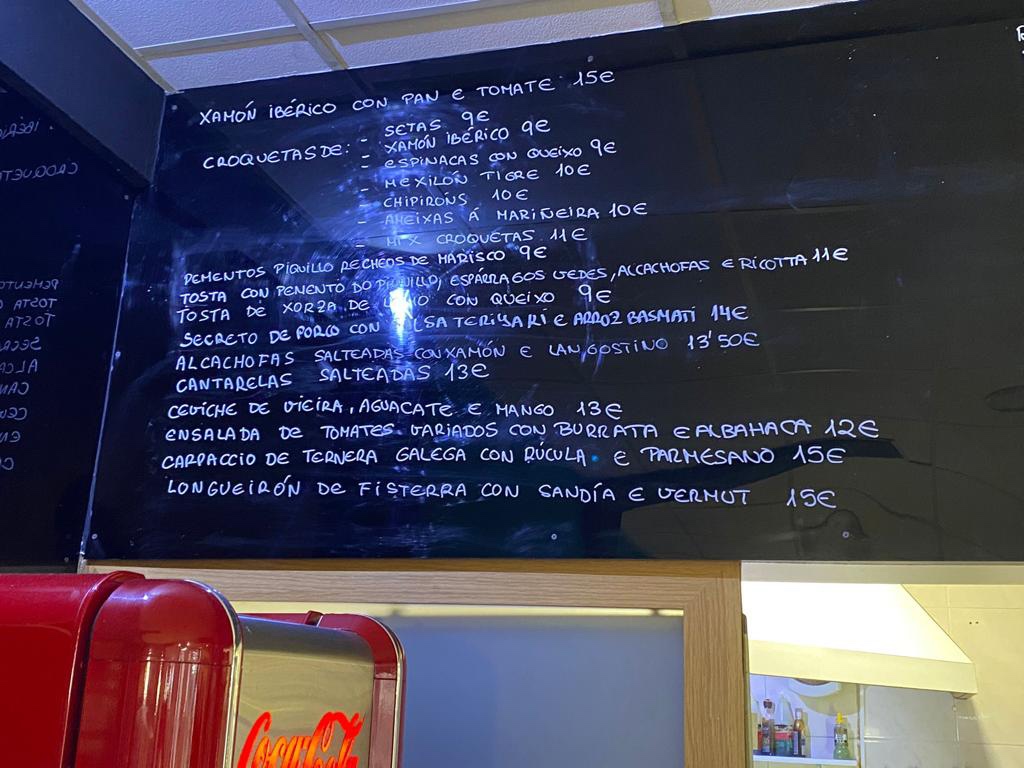 XAMÓN IBÉRICO CON PAN E TOMATE 15€
CROQUETAS DE: - SETAS 9€
- XAMÓN IBÉRICO 9€
- ESPINACAS CON QUEIXO 9€
- MEXILÓN TIGRE 10€
- CHIPIRÓNS 10€
- AMEIXAS Á MARIÑEIRA 10€
- MIX CROQUETAS 11€
PEMENTOS PIQUILLO RECHEOS DE MARISCO 9€
TOSTA CON PEMENTO DO PIQUILLO, ESPÁRRAGOS VEDES, ALCACHOFAS E RICOTTA 11€
TOSTA DE XORZA DE CON QUEIXO 9€
SECRETO DE PORCO CON SALSA TERIYAKI E ARROZ BASMATÍ 14€
ALCACHOFAS SALTEADAS CON XAMÓN E LANGOSTINO 13'50€
CANTARELAS SALTEADAS 13€
CEVICHE DE VIEIRA, AGUACATE E MANGO 13€
ENSALADA DE TOMATES VARIADOS CON BURRATA E ALBAHACA 12€
CARPACCIO DE TERNERA GALEGA CON RÚCULA E PARMESANO 15€
LONGUEIRÓN DE FISTERRA CON SANDÍA E VERMUT 15€
Coca-Cola